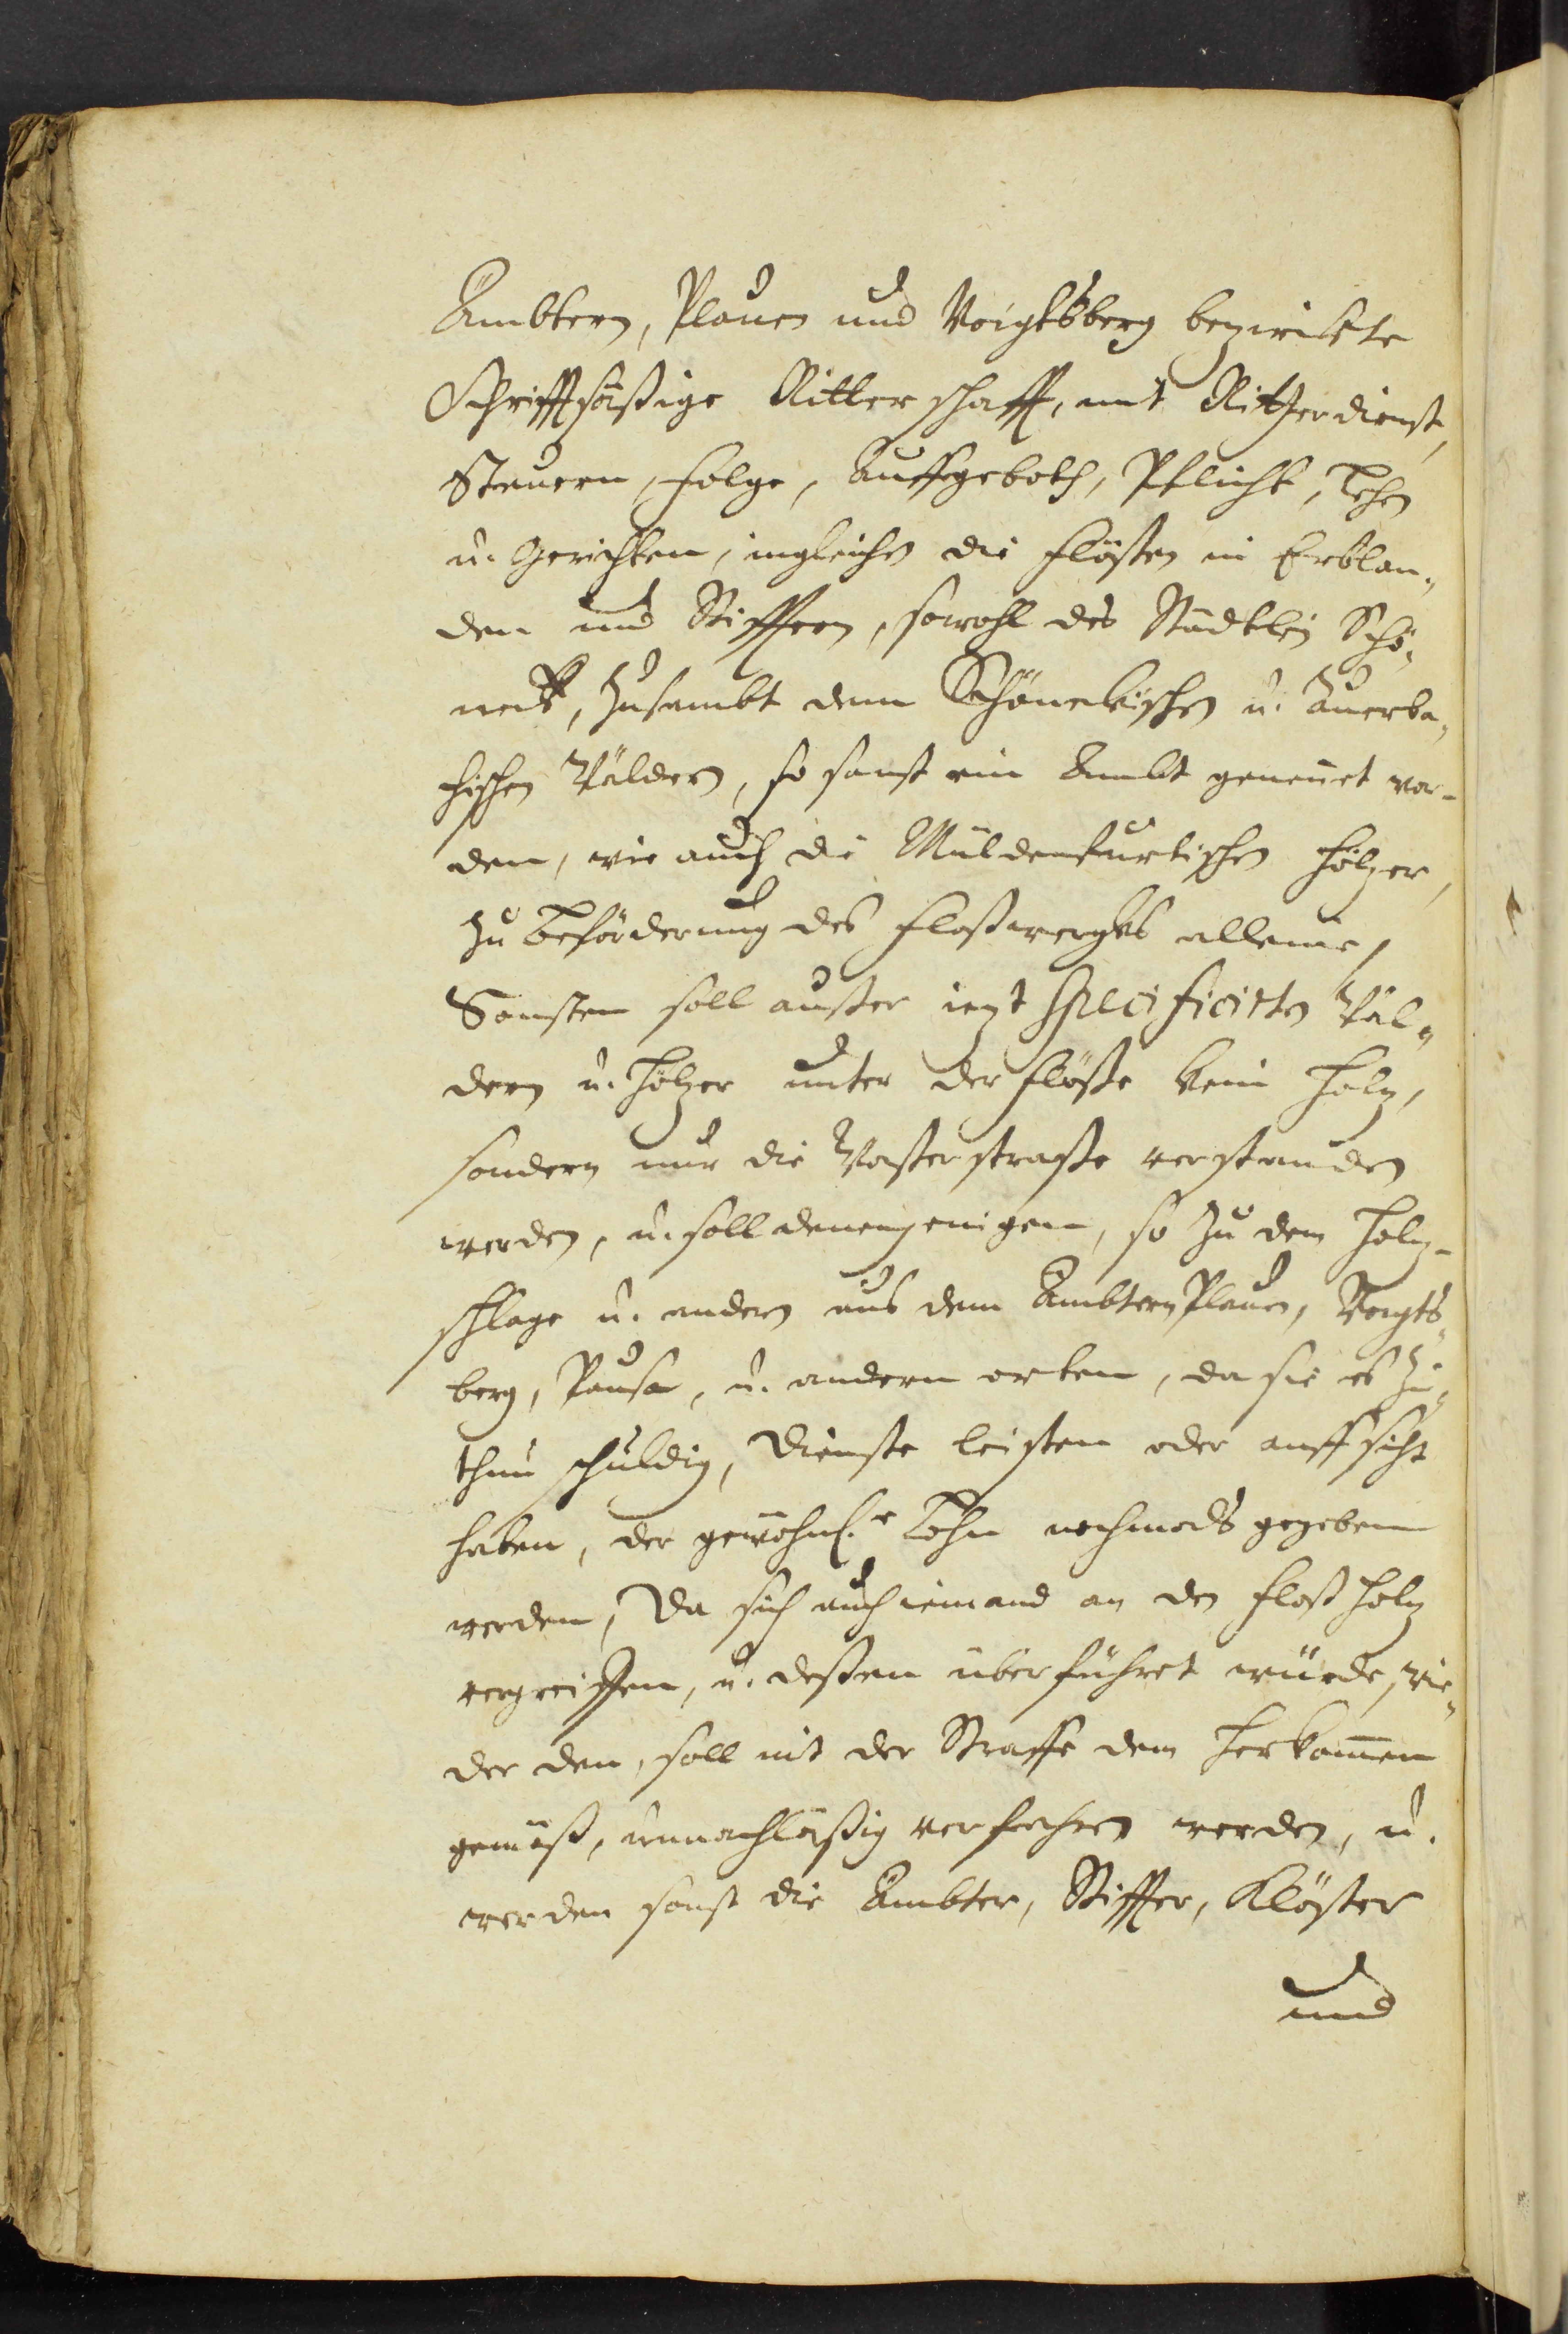 Ämbtern, Plauen und Voigtsberg bezirckte
Schrifftsäßige Ritterschafft, mit Ritterdienst,
Steuern, Folge, Auffgeboth, Pflicht, Lehen
u. Gerichten, ingleichen die Flößen in Erblan„
den und Stifftern, sowohl des Städtlein Schö„
neck, zusambt dem Schöneckischen u. Auerba„
chischen Wälden, so sonst ein Ambt genennet wor-
den, wie auch die Müldenfurtischen Hölzer,
zu Beförderung des Floßwergks alleine,
Sonsten soll außer iezt specificirten Wäl„
dern u. Hölzer unter der Flöße kein Holz,
sondern nur die Waßerstraße verstanden
werden, u. soll denenjenigen, so zu dem Holz-
schlage u. andern aus dem Ämbtern Plauen, Voigts„
berg, Pausa, u. andern orten, da sie es zu„
thun schuldig, Dienste leisten oder auffsicht
haben, der gewöhnl.e Lohn nochmals gegeben
werden, Da sich auch iemand an den Floßholz
vergreiffen, u. deßen überführet würde, wie„
der den, soll mit der Straffe dem Herkommen
gemäß, unnachläßig verfahren werden, u.
werden sonst die Ämbter, Stiffter, Klöster
und